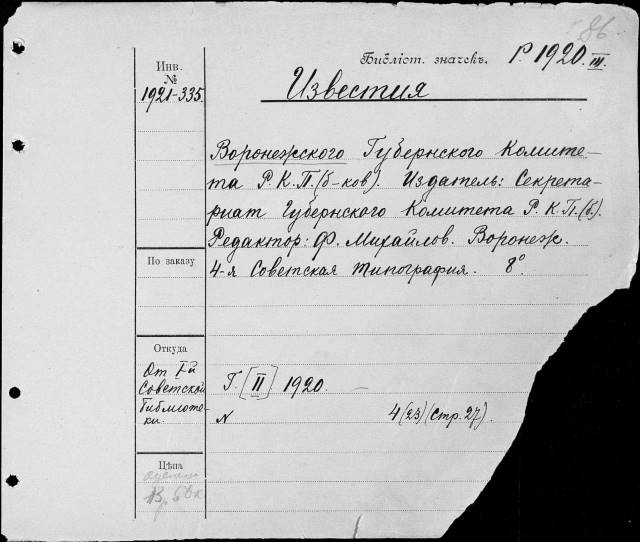 86
Библіот. значекъ. Р. 1920 III.
Инв. №
1921-335.
Известия
Воронежского Губернского Комите-
та Р.К.П.(б-ков). Издатель: Секрета-
риат Губернского Комитета Р.К.П.(б).
Редактор: Ф. Михайлов. Воронеж.
4-я Советская типография. 8°
По заказу
Откуда
От I-й
Советской
Библиоте-
ки.
Г. [II] 1920. —
N 4(23)(стр. 27).
Цѣна